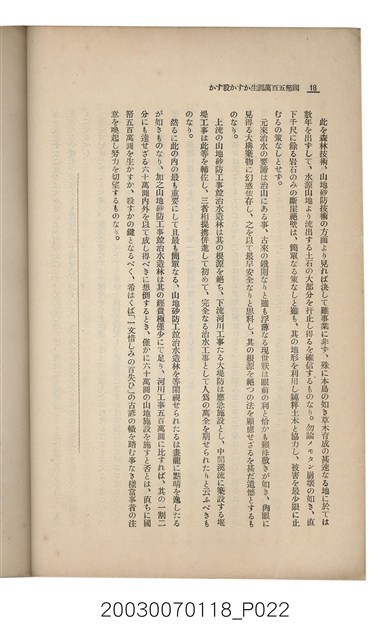 18 國帑五百萬圓生かすか殺すか
此を森林技術、山地砂防技術の方面より見れば決して難事業に非す、殊に本島の如き草木育成の甚速なる地に於ては
數年を出ずして、水源山地より流出する土石の大部分を扞止し得るを確信するものなり。勿論メモタン崩壞の如き、直
下千尺に餘る岩石のみの斷崖絕壁は、簡單なる策なしと雖も、其の地形を利用し純粹土木と協力し、被害を最少限に止
むるの策なしとせす。
元來治水の要諦は治山にある事、古來の鐵則なりと雖も浮薄なる現世狀は眼前の利と恰かも賴母敷きが如き、肉眼に
見得る大構築物に幻惑依存し、之を以て最早安全なりと思料し、其の根源を絕つの法を顧慮せさるを甚だ遺憾とするも
のなり。
上流の山地砂防工事竝治水造林は其の根源を絕ち、下流河川工事たる大堤防は應急施設とし、中間溪流に築設する堰
堤工事は此等を輔佐し、三者相提携併進して初めて、完全なる治水工事として人爲の萬全を期せられたりと云ふべきも
のなり。
然るに此の内の最も重要にして且最も簡單なる、山地砂防工事竝治水造林を等閑視せられたるは畫龍に點睛を逸したる
が如きものなり、加之山地砂防工事竝治水造林は其の經費極僅少にて足り、河川工事五百萬圓に比すれば、其の一割二
分にも達せざる六十萬圓内外を以て成し得べきに想倒するとき、僅かに六十萬圓の山地施設を施すと否とは、直ちに國
帑五百萬圓を生かすか、殺すかの鍵となるべく、希はくば「一文惜しみの百失ひ」の古諺の轍を踏む事なき樣當事者の注
意を喚起し努力を切望するものなり。
20030070118_P022